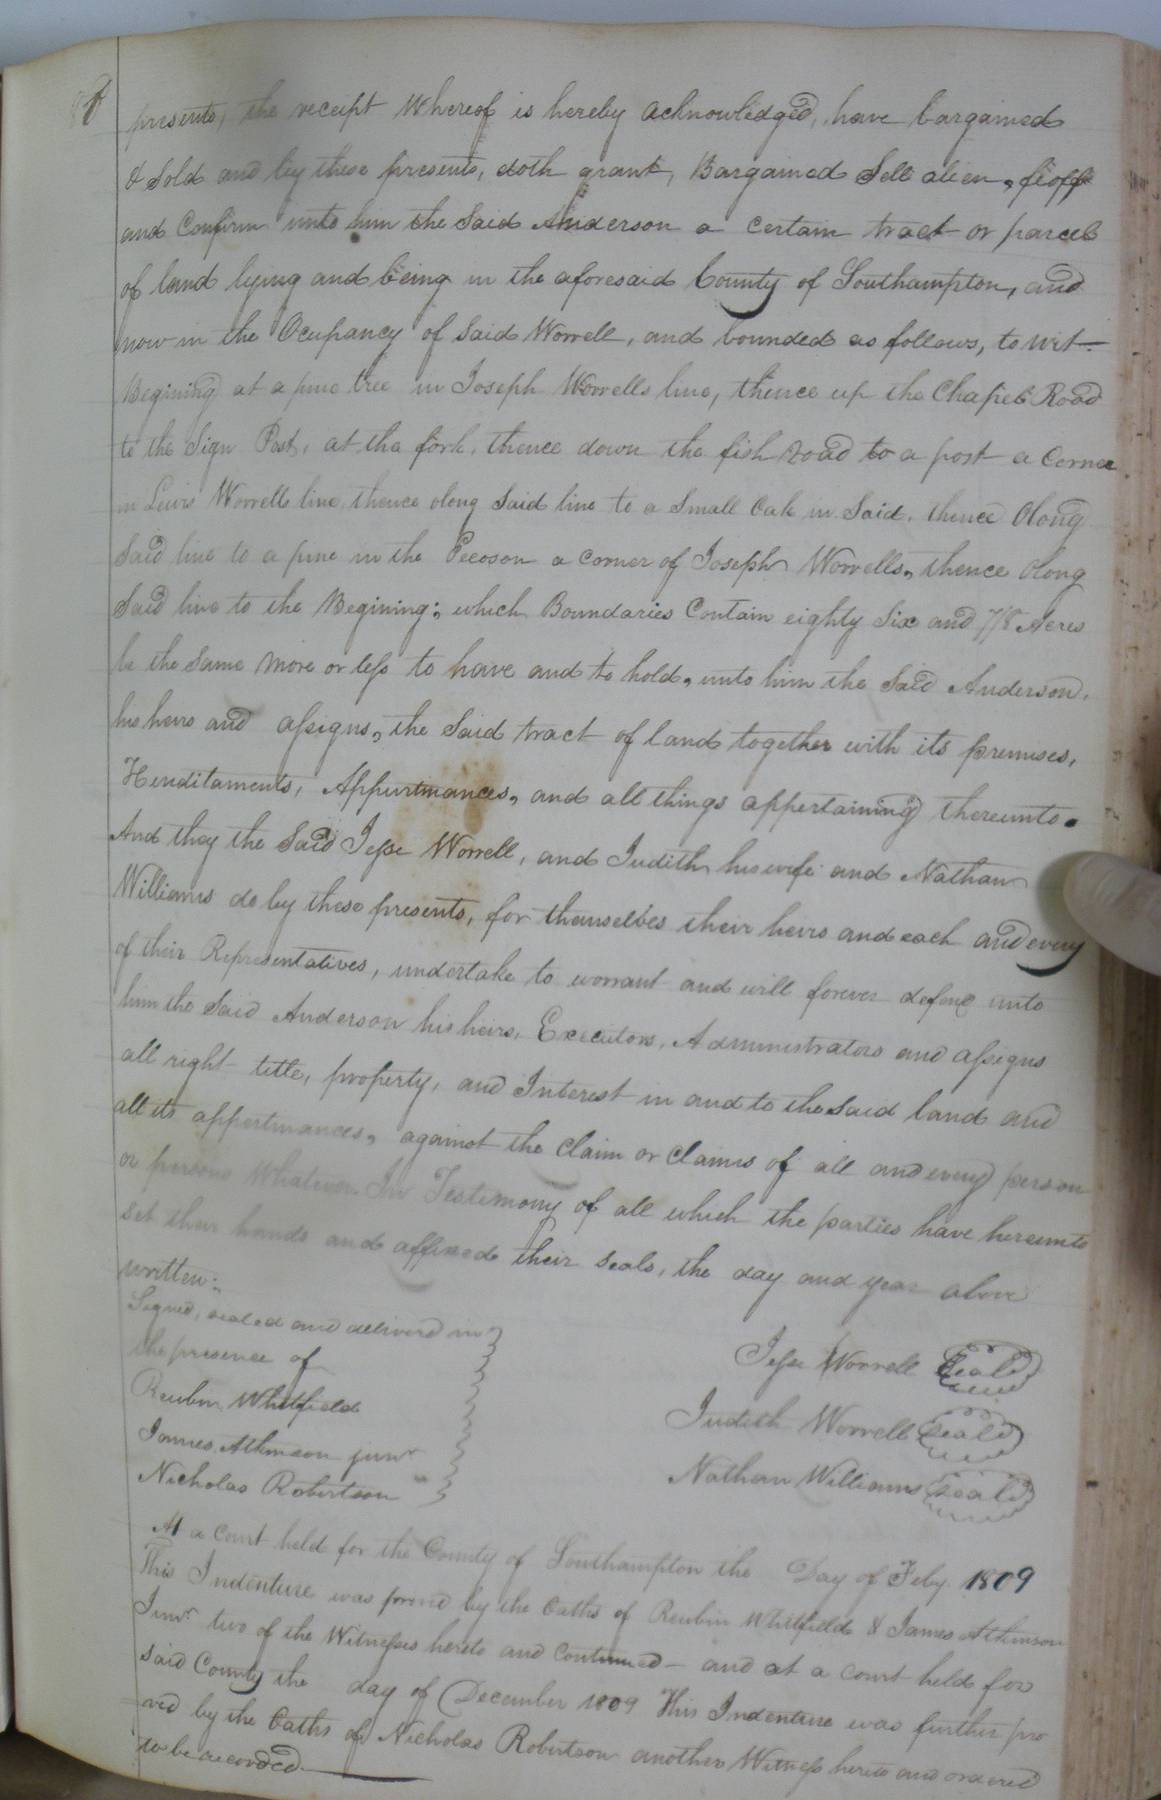 presents, the receipt Whereof is hereby acknowledged, have bargained
& Sold and by these presents, doth grant, Bargained Sell alien, feoff
and Confirm unto him the Said Anderson a certain tract or parcel
of land lying and being in the aforesaid County of Southampton, and
now in the Ocupancy of Said Worrell, and bounded as follows, to wit—
Begining at a pine tree in Joseph Worrells line, thence up the Chapel Road
to the Sign Post, at the fork, thence down the fish road to a post a Corner
in Lewis Worrells line, thence along Said line to a Small Oak in Said, thence along
Said line to a pine in the Pecoson a corner of Joseph Worrells, thence along
Said line to the Begining; which Boundaries Contain eighty Six and 7/8 Acres
be the Same more or less to have and to hold, unto him the Said Anderson,
his heirs and assigns, the Said tract of land together with its premises,
Henditaments, Appurtmances, and all things appertaining thereunto.
And they the Said Jesse Worrell, and Judith his wife and Nathan
Williams do by these presents, for themselves their heirs and each and every
of their Representatives, undertake to worrant and will forever defend unto
him the Said Anderson his heirs, Executors, Administrators and assigns
all right title, property, and Interest in and to the said land and
all its appertmances, against the Claim or Claims of all and every person
or persons Whatever. In Testimony of all which the parties have hereunto
set their hands and affixed their seals, the day and year above
written:
Signed, sealed and deliverd in
the presence of
Jesse Worrell Seal
Reubin Whitfield
Judith Worrell Seal
James Atkinson junr
Nathan Williams Seal
Nicholas Robertson
At a Court held for the County of Southampton the Day of Feby 1809
This Indenture was proved by the Oaths of Reubin Whitfield & James Atkinson
Junr two of the Witnesses hereto and Continued — and at a court held for
said County the day of December 1809 This Indenture was further pro
ved by the Oaths of Nicholas Robertson another Witness hereto and ordered
to be recorded